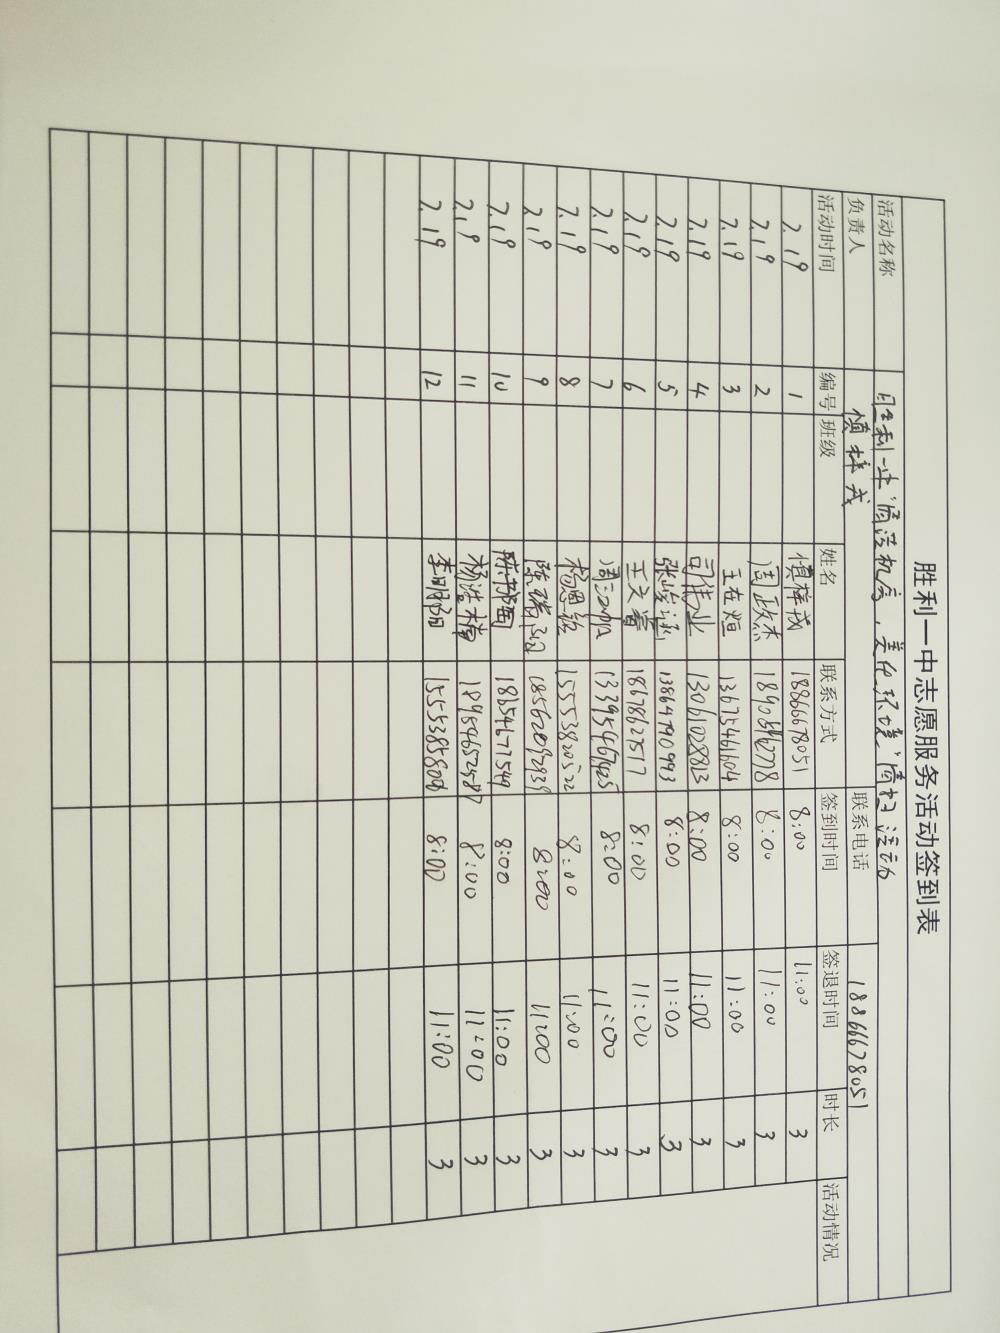 胜利一中志愿服务活动签到表
活动名称 胜利一中"清洁机房，美化环境"清扫活动
负责人 慎梓戎 联系电话 18866678051
活动时间 编号 班级 姓名 联系方式 签到时间 签退时间 时长 活动情况
2.19 1 慎梓戎 18866678051 8:00 11:00 3
2.19 2 周政杰 8:00 11:00 3
2.19 3 王在烜 13675461604 8:00 11:00 3
2.19 4 司伟业 13061028813 8:00 11:00 3
2.19 5 13864790993 8:00 11:00 3
2.19 6 王天睿 18678627517 8:00 11:00 3
2.19 7 8:00 11:00 3
2.19 8 15553820522 8:00 11:00 3
2.19 9 8:00 11:00 3
2.19 10 18654671549 8:00 11:00 3
2.19 11 杨浩楠 18954652587 8:00 11:00 3
2.19 12 李明阳 15553858808 8:00 11:00 3